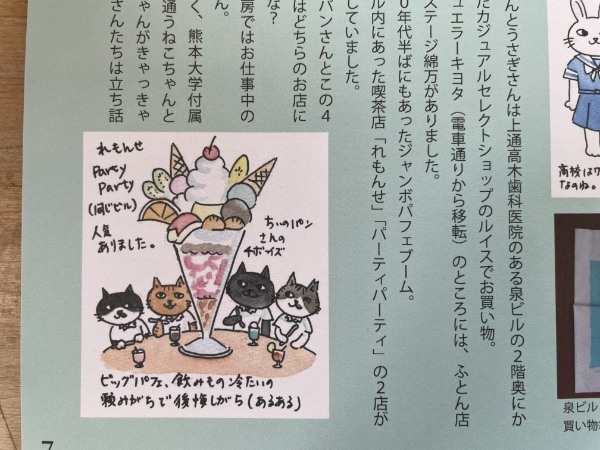 んとうさぎさんは上通高木歯科医院のある泉ビルの2階奥にか
たカジュアルセレクトショップのルイスでお買い物。
ュエラーキヨタ（電車通りから移転）のところには、ふとん店
ステージ綿万がありました。
0年代半ばにもあったジャンボパフェブーム。
ル内にあった喫茶店「れもんせ」「パーティパーティ」の2店が
していました。
パンさんとこの4
はどちらのお店に
な？
房ではお仕事中の
ん。
く、熊本大学付属
通うねこちゃんと
ゃんがきゃっきゃ
さんたちは立ち話
れもんせ
Party
Party
(同じビル)
人気
ありました。
ちぃのパン
さんの
4ボーイズ
ビッグパフェ、飲みもの冷たいの
頼みがちで後悔しがち(あるある)
高校は
なのね。
泉ビル
買い物
7